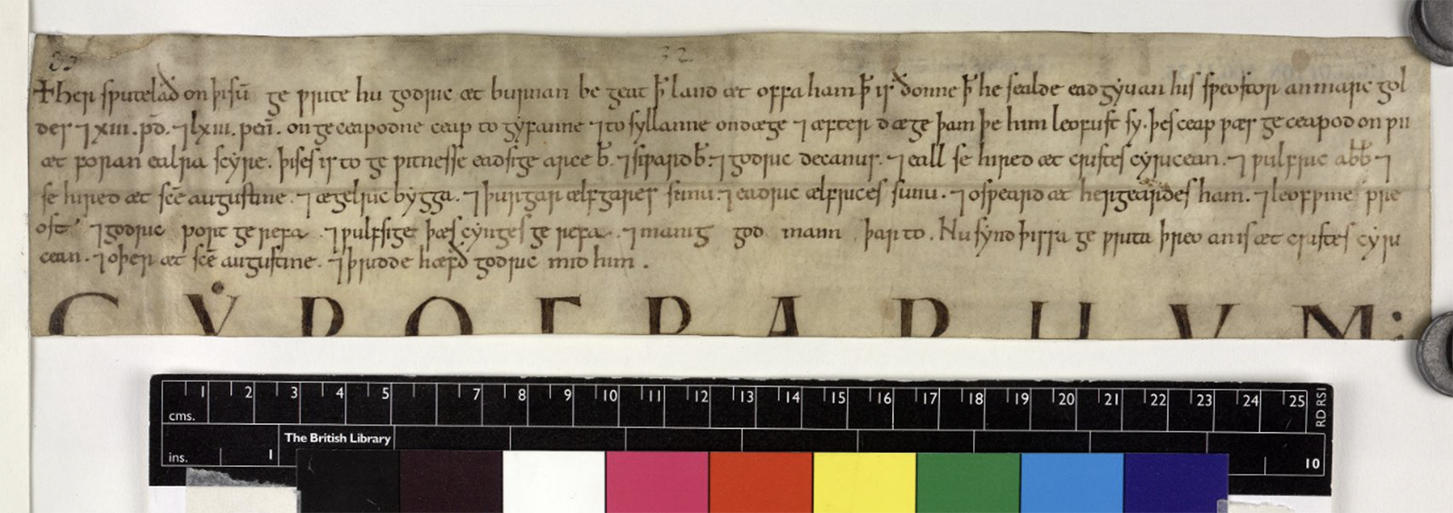 33 32
✝ Her sƿutelað on þisū geƿrite hu godric æt burnan begeat ꝥ land æt offaham ꝥ is ðonne ꝥ he sealde eadgyuan his sƿeostor an marc gol
des ⁊ xiii. pd̄. ⁊ lxiii. pen̄. on geceapodne ceap to gyfanne ⁊ to syllanne on dæge ⁊ æfter dæge þam þe him leofust sy. þes ceap ƿæs geceapod on ƿii
æt foran ealra scyre. þises is to geƿitnesse eadsige arceb̄. ⁊ siƿard b̄. ⁊ godric decanus. ⁊ eall se hired æt cristes cyricean. ⁊ ƿulfric abb̄ ⁊
se hired æt sc̄e augustine. ⁊ ægelric bygga. ⁊ þurgar ælfgares sunu. ⁊ eadric ælfrices sunu. ⁊ osƿeard æt hergeardes ham. ⁊ leofƿine pre
ost ⁊ godric port gerefa. ⁊ ƿulfsige þæs cynges gerefa. ⁊ manig god mann þar to. Nu synd þissa geƿrita þreo an is æt cristes cyri
cean. ⁊ oþer æt sc̄e augustine. ⁊ þridde hæfð godric mid him.
CẎROGRAPHVM:
cms. 1 2 3 4 5 6 7 8 9 10 11 12 13 14 15 16 17 18 19 20 21 22 23 24 25 RD RSI
The British Library
ins. 1 10